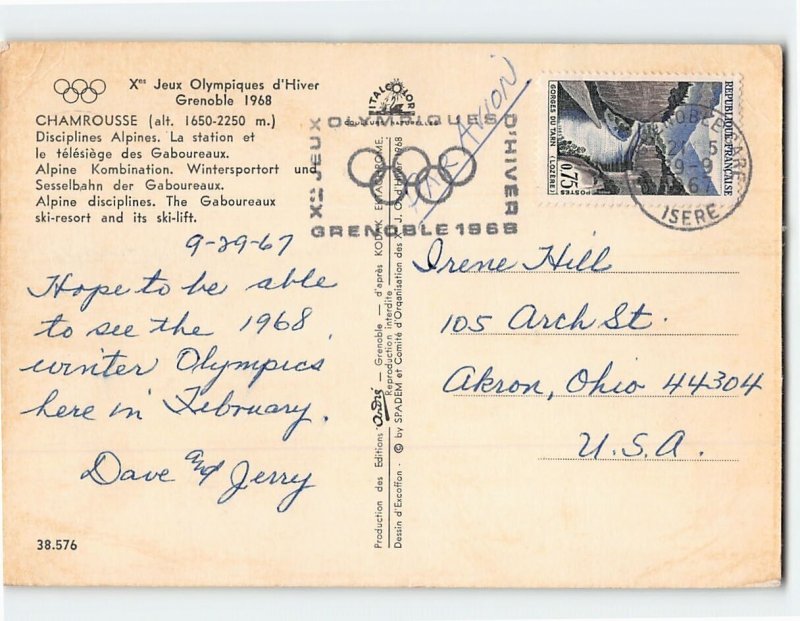 Xes Jeux Olympiques d'Hiver
Grenoble 1968
CHAMROUSSE (alt. 1650-2250 m.)
Disciplines Alpines. La station et
le télésiège des Gaboureaux.
Alpine Kombination. Wintersportort und
Sesselbahn der Gaboureaux.
Alpine disciplines. The Gaboureaux
ski-resort and its ski-lift.
9-29-67
Hope to be able
to see the 1968
winter Olympics
here in February.
Dave and Jerry
38.576
ITALCOLOR
Xes JEUX OLYMPIQUES D'HIVER
GRENOBLE 1968
PAR AVION
Production des Editions André — Grenoble — d'après KODAK EKTACHROME
Reproduction interdite
Dessin d'Excoffon - © by SPADEM et Comité d'Organisation des X J. O. d'Hiver 1968
REPUBLIQUE FRANÇAISE
GORGES DU TARN (LOZERE)
0,75
POSTES
ISERE
Irene Hill
105 Arch St.
Akron, Ohio 44304
U.S.A.